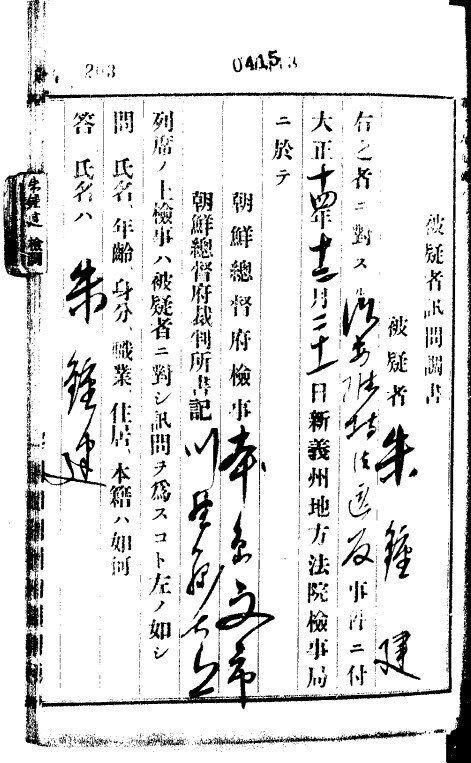 203
0415
被疑者訊問調書
被疑者 朱鍾建
右之者ニ對ス治安維持法違反事件ニ付
大正十四年十二月二十一日新義州地方法院檢事局
ニ於テ
朝鮮總督府檢事 本島文市
朝鮮總督府裁判所書記
列席ノ上檢事ハ被疑者ニ對シ訊問ヲ爲スコト左ノ如シ
問 氏名、年齡、身分、職業、住居、本籍ハ如何
答 氏名ハ 朱鍾建